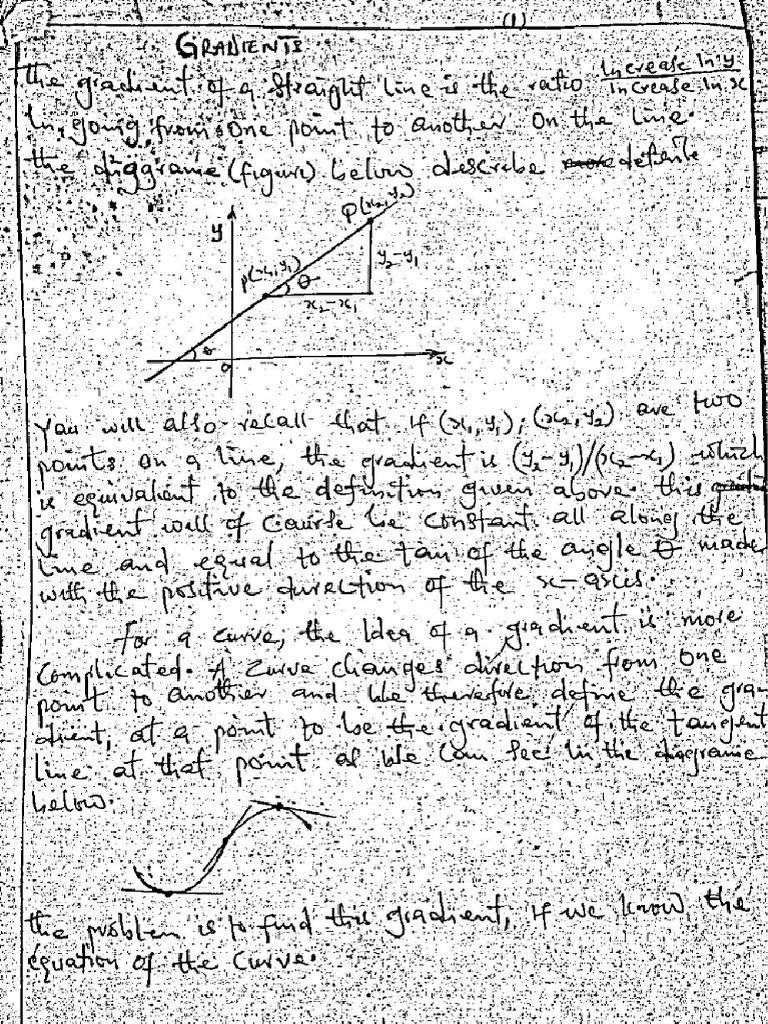 (1)
GRADIENTS
the gradient of a straight line is the ratio Increase in y / Increase in x
In, going from one point to another on the line.
the diggrame (figure) below describe definite
P(x2, y2)
y
P(x1, y1)
θ
y2-y1
x2-x1
θ
o
x
You will also recall that if (x1, y1); (x2, y2) are two
points on a line, the gradient is (y2-y1)/(x2-x1) which
is equivalent to the definition given above. this
gradient will of course be constant all along the
line and equal to the tan of the angle θ made
with the positive direction of the x-axis.
for a curve, the Idea of a gradient is more
Complicated. A Curve changes direction from one
point to another and We therefore define the gra-
dient, at a point to be the gradient of the tangent
line at that point as We Can See in the diagrame
below.
the problem is to find this gradient, if we know the
equation of the Curve.